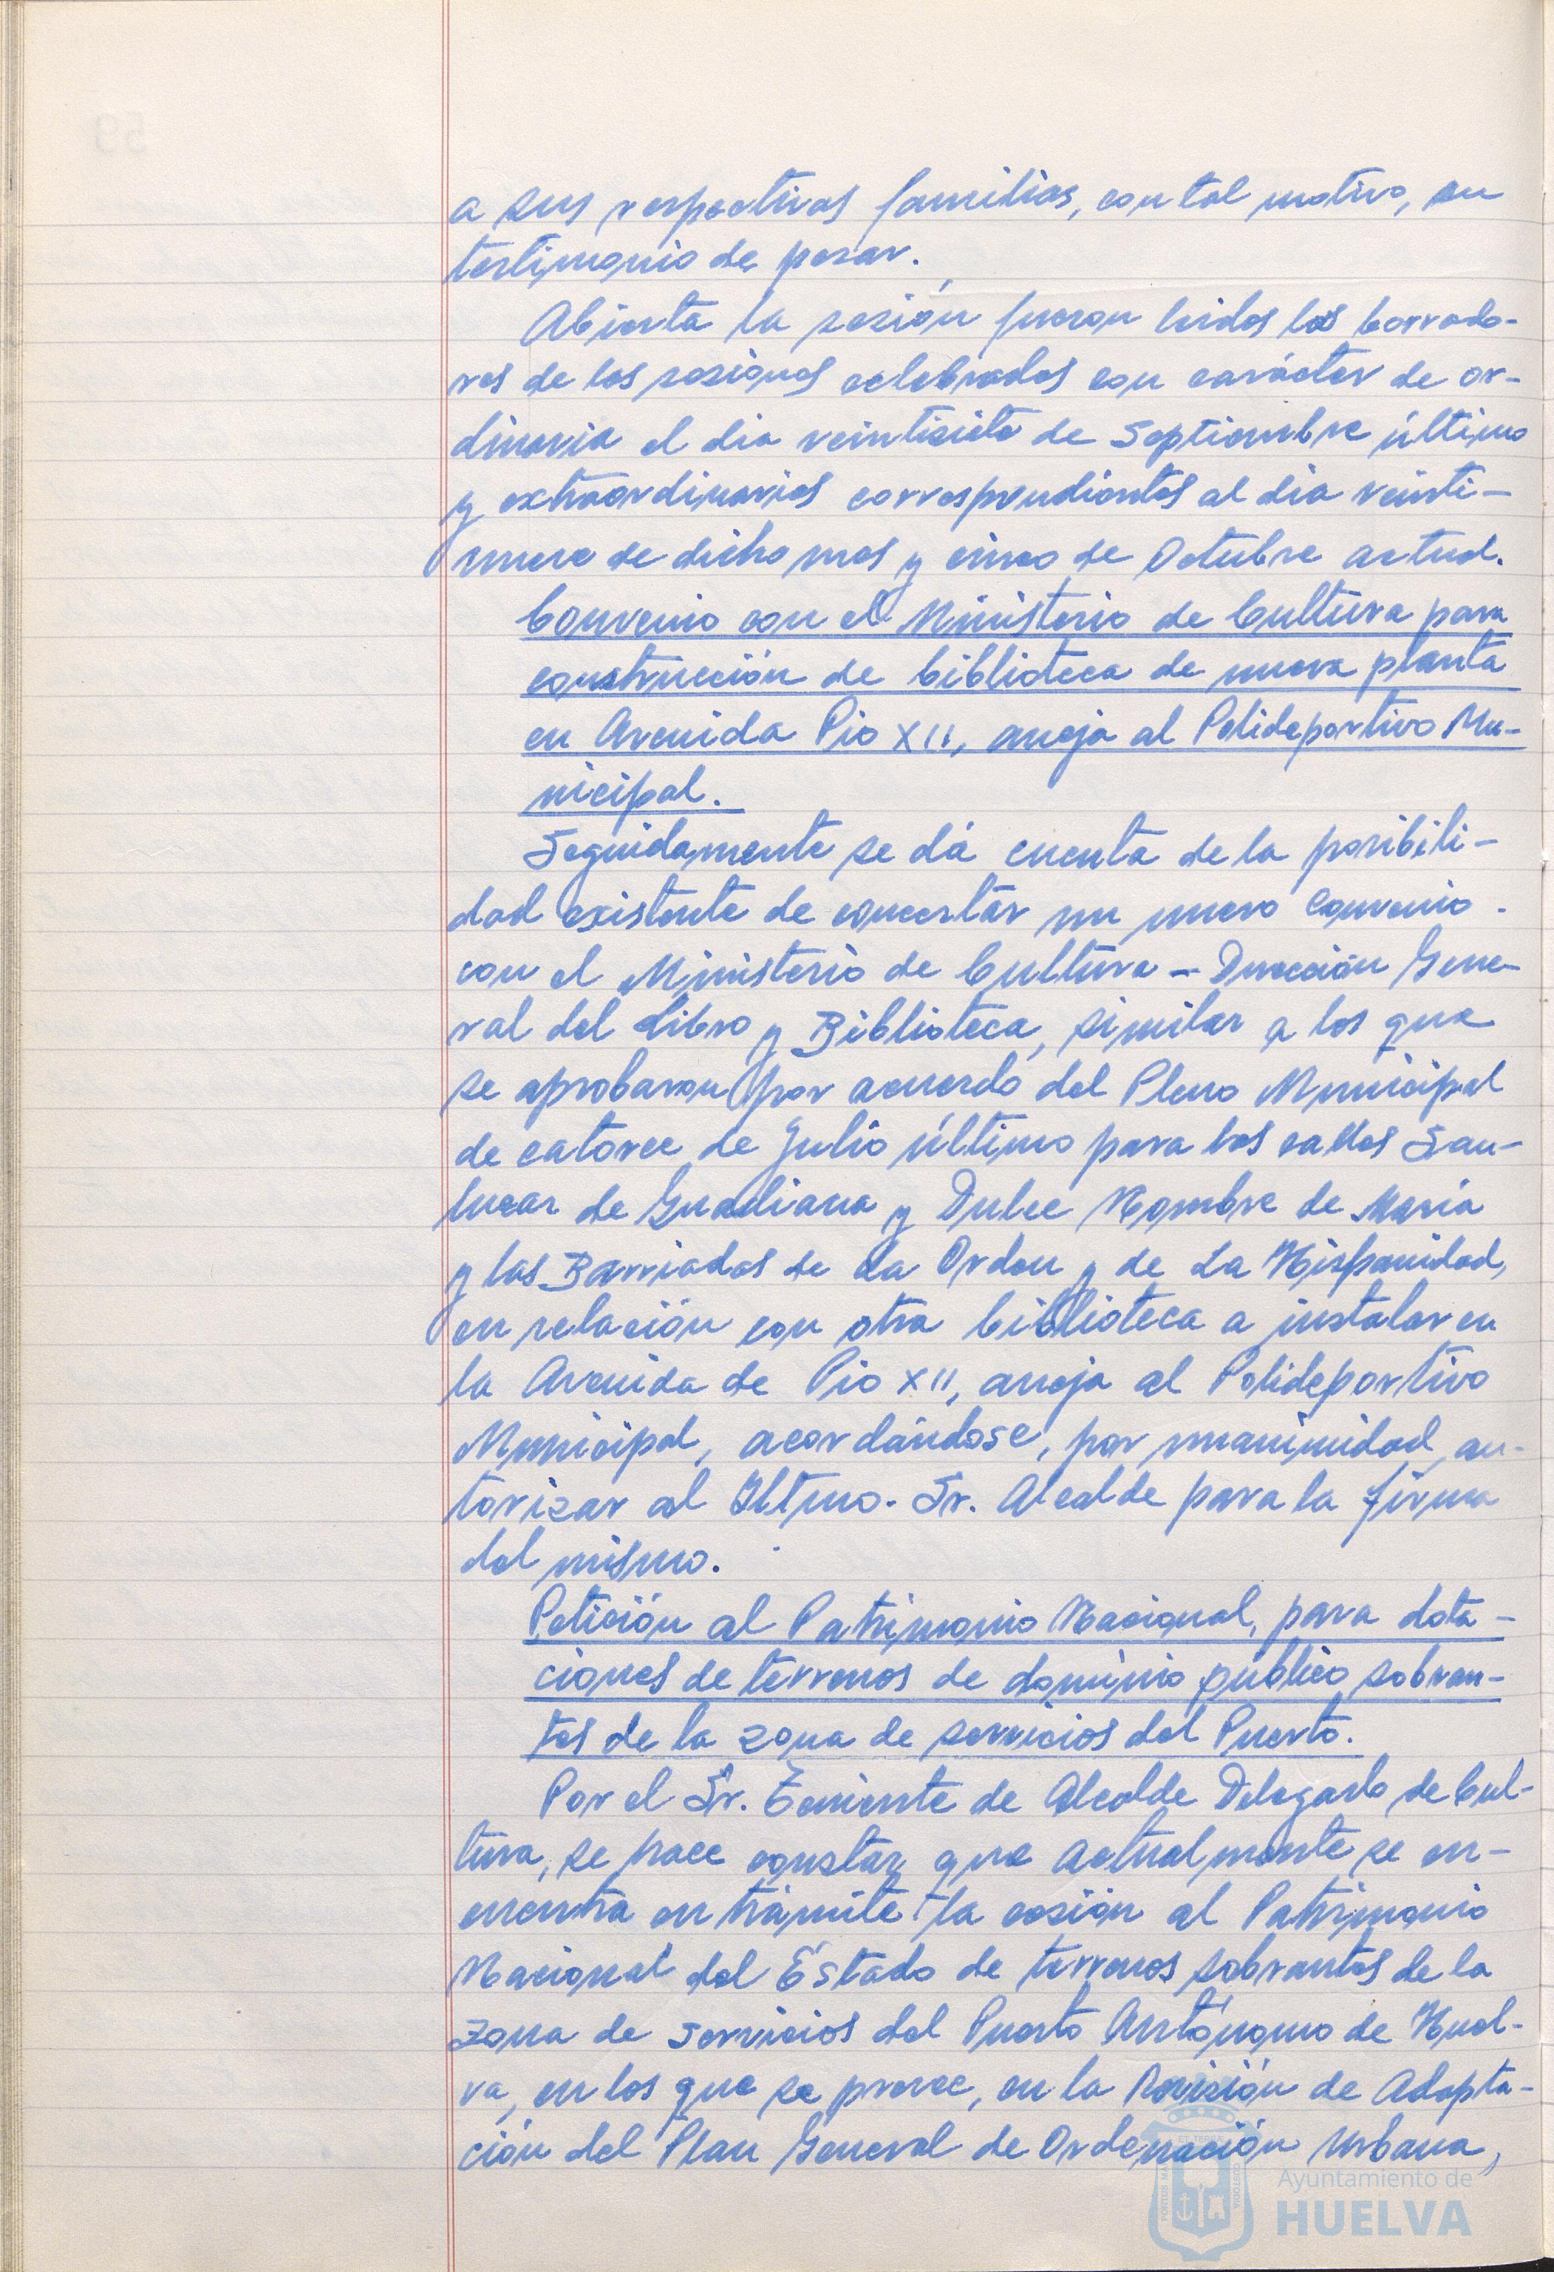 a sus respectivas familias, con tal motivo, su
testimonio de pesar.
Abierta la sesión fueron leidos los borrado-
res de las sesiones celebradas con carácter de or-
dinaria el dia veintisiete de Septiembre último
y extraordinarias correspondientes al dia veinti-
nueve de dicho mes y cinco de Octubre actual.
Convenio con el Ministerio de Cultura para
construcción de biblioteca de nueva planta
en Avenida Pio XII, aneja al Polideportivo Mu-
nicipal.
Seguidamente se dá cuenta de la posibili-
dad existente de concertar un nuevo Convenio
con el Ministerio de Cultura - Dirección Gene-
ral del Libro y Biblioteca, similar a los que
se aprobaron por acuerdo del Pleno Municipal
de catorce de Julio último para las calles San-
lucar de Guadiana y Dulce Nombre de María
y las Barriadas de La Orden y de La Hispanidad,
en relación con otra biblioteca a instalar en
la Avenida de Pio XII, aneja al Polideportivo
Municipal, acordándose, por unanimidad, au-
torizar al Iltmo. Sr. Alcalde para la firma
del mismo.
Petición al Patrimonio Nacional, para dota-
ciones de terrenos de dominio público sobran-
tes de la zona de servicios del Puerto.
Por el Sr. Teniente de Alcalde Delegado de Cul-
tura, se hace constar que actualmente se en-
cuentra en trámite la cesión al Patrimonio
Nacional del Estado de terrenos sobrantes de la
Zona de Servicios del Puerto Autónomo de Huel-
va, en los que se prevee, en la Revisión de Adapta-
ción del Plan General de Ordenación Urbana,
Ayuntamiento de
HUELVA